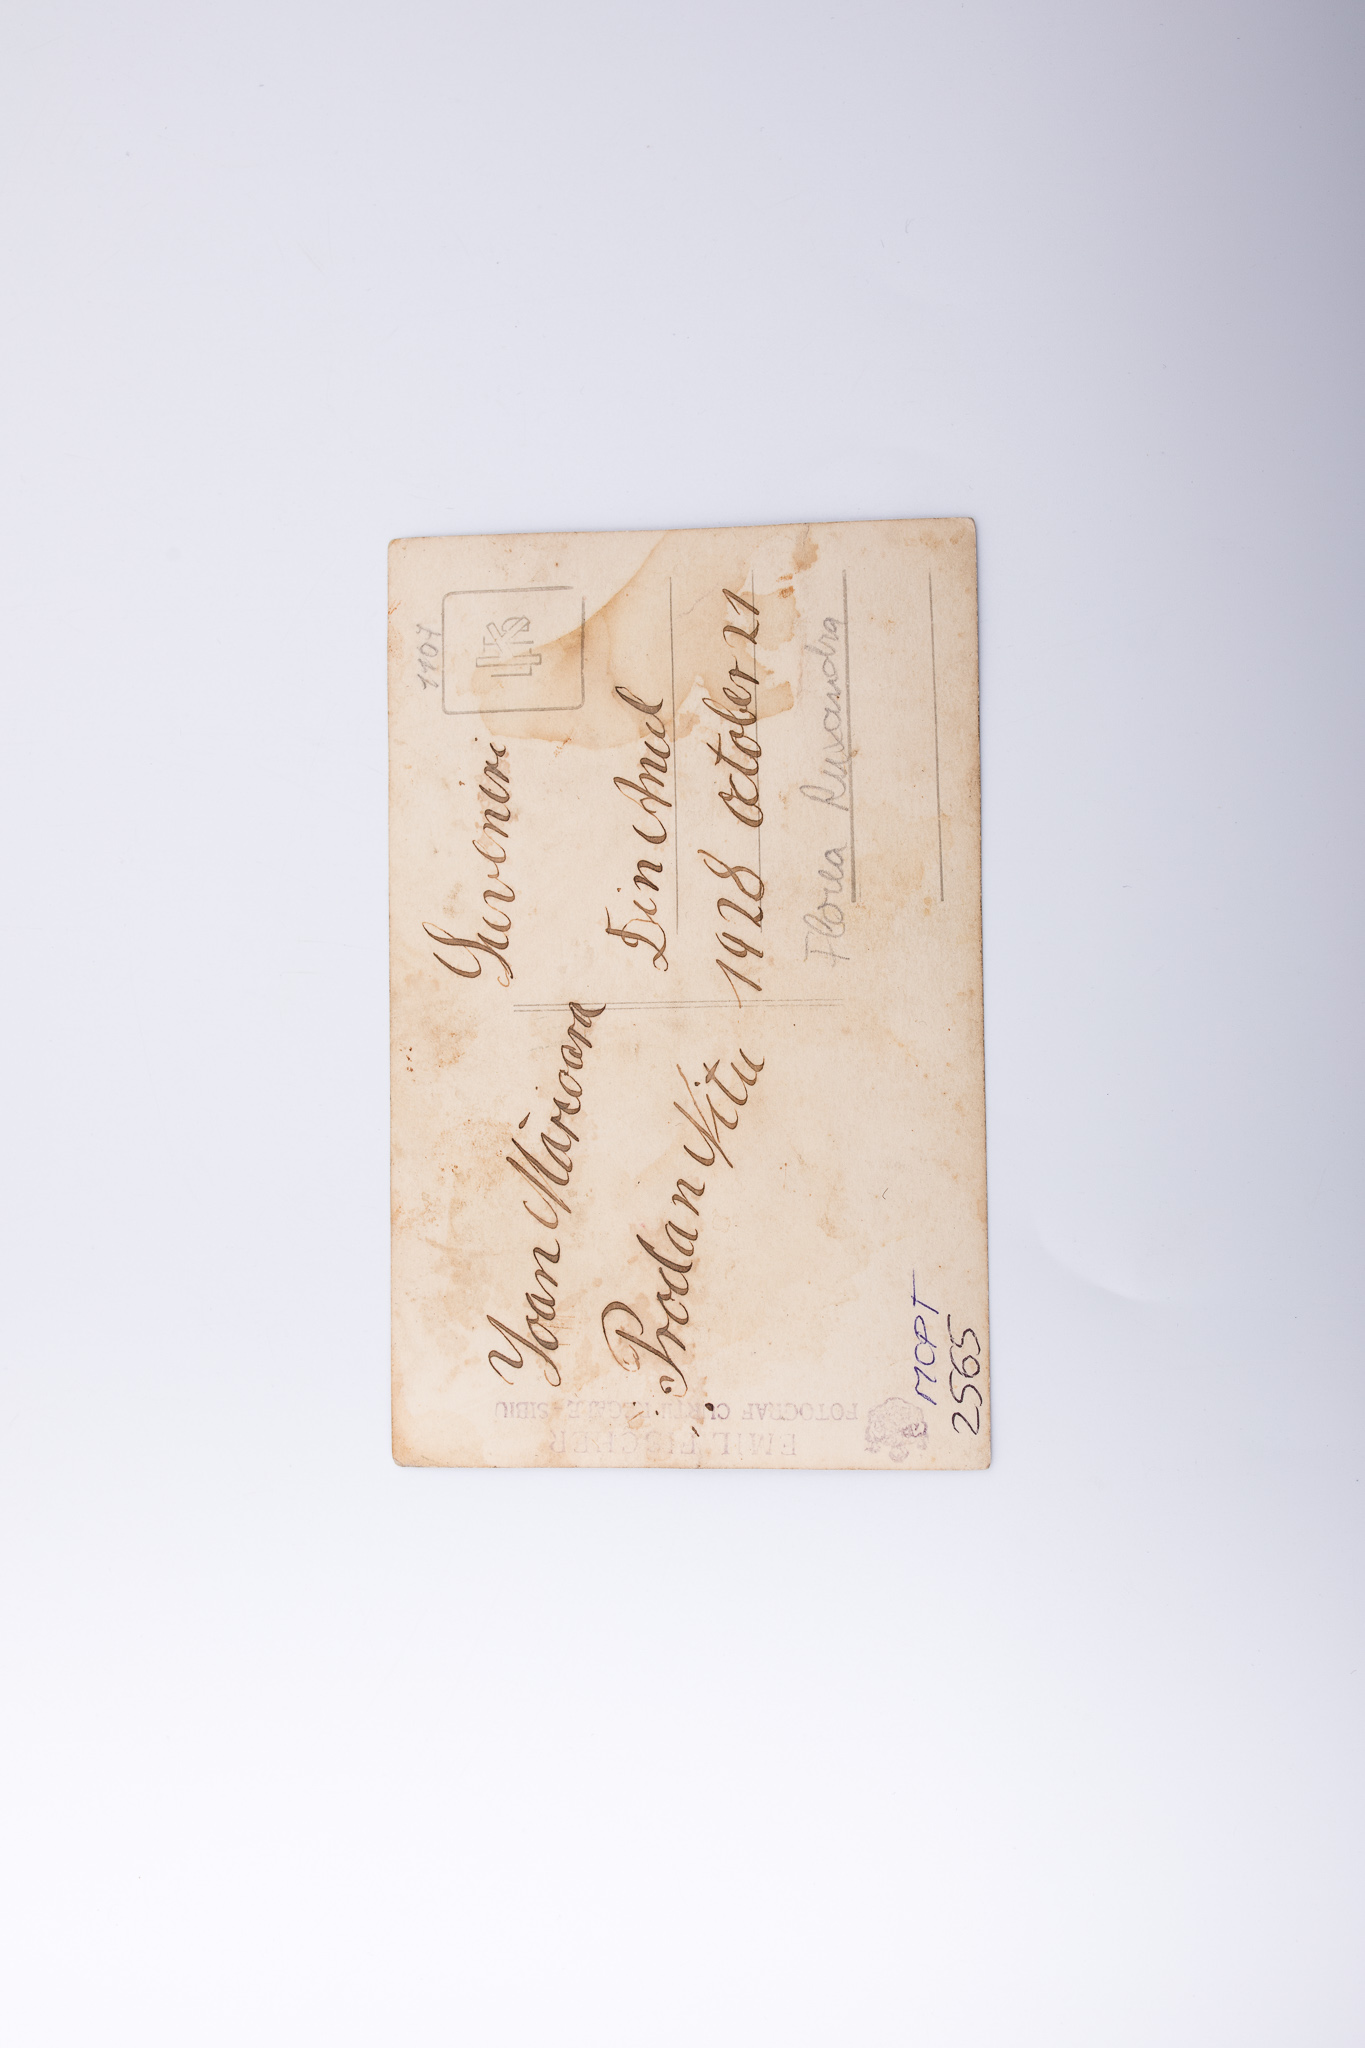 1107
Suveniri
Yoan Mărioara
Din Anul
Prodan Nitu
1928 October 21
Florea Ruxandra
EMIL FISCHER
FOTOGRAF CURTII REGALE SIBIU
MCPT
2565